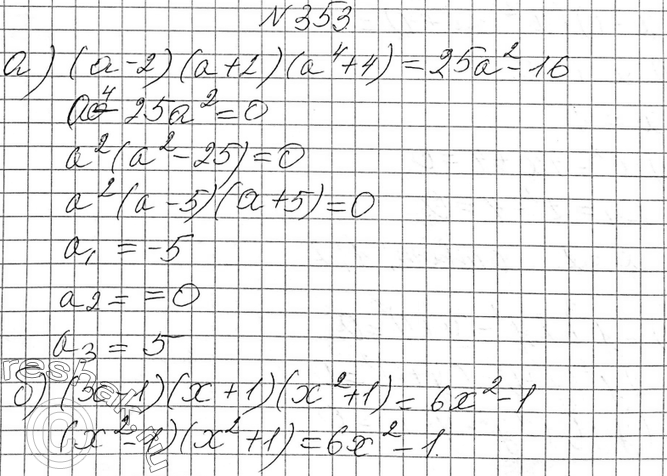 №353
а) (a-2)(a+2)(a⁴+4)=25a²-16
a⁴-25a²=0
a²(a²-25)=0
a²(a-5)(a+5)=0
a₁=-5
a₂==0
a₃=5
б) (x-1)(x+1)(x²+1)=6x²-1
(x²-1)(x²+1)=6x²-1.